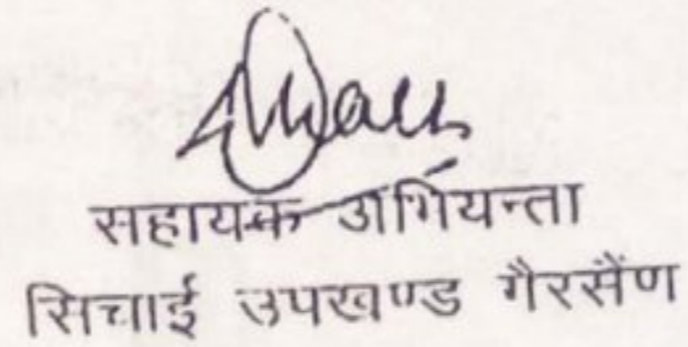 सहायक अभियन्ता
सिचाई उपखण्ड गैरसैंण